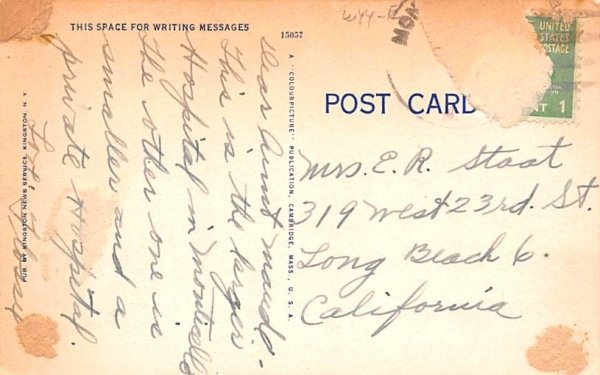 THIS SPACE FOR WRITING MESSAGES
15057
W44-
MON
UNITED
STATES
POSTAGE
NT 1
POST CARD
Dear Aunt Maud-
This is the larger
Hospital in Monticello
the other one is
smaller and a
private Hospital.
Love
Mrs. E. R. Staat
319 West 23rd. St.
Long Beach 6.
California
A "COLOURPICTURE" PUBLICATION, CAMBRIDGE, MASS., U.S.A.
PUB. BY KINGSTON NEWS SERVICE, KINGSTON, N.Y.